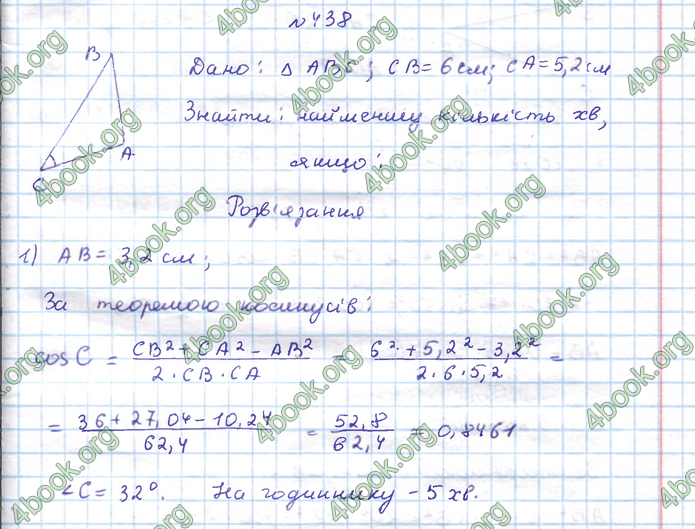 № 438
B
A
C
Дано: Δ ABC; CB = 6 см; CA = 5,2 см
Знайти: найменшу кількість хв,
якщо:
Розв'язання
1) AB = 3,2 см;
За теоремою косинусів:
cos C = (CB² + CA² - AB²) / (2 · CB · CA) = (6² + 5,2² - 3,2²) / (2 · 6 · 5,2) =
= (36 + 27,04 - 10,24) / 62,4 = 52,8 / 62,4 = 0,8461
∠C = 32°. На годиннику - 5 хв.
4book.org